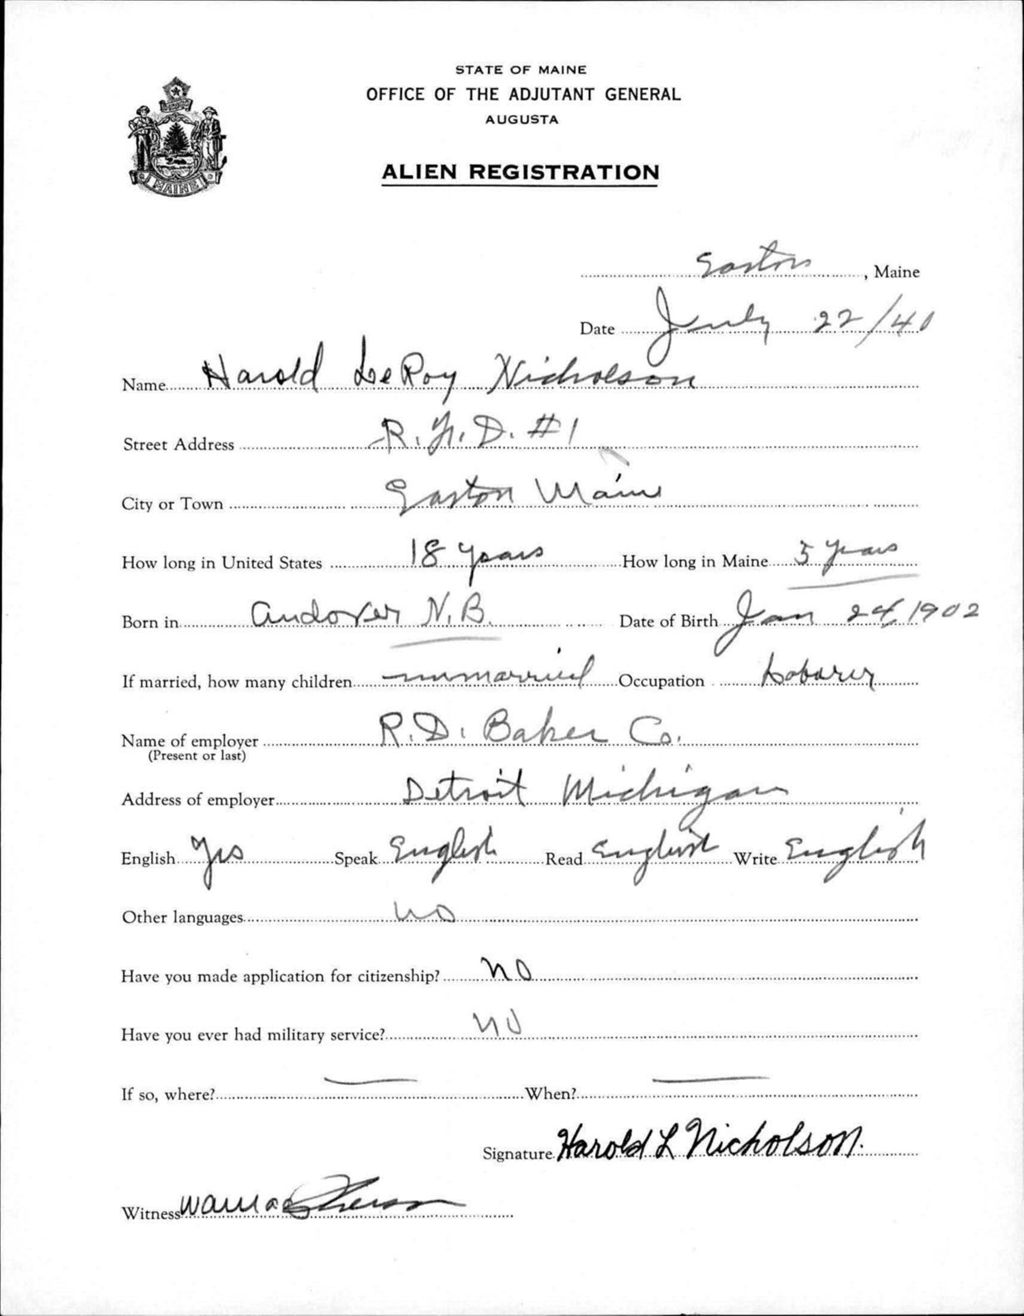 STATE OF MAINE
OFFICE OF THE ADJUTANT GENERAL
AUGUSTA
ALIEN REGISTRATION
MAINE
Easton, Maine
Date July 22/40
Name Harold LeRoy Nicholson
Street Address R.F.D. #1
City or Town Easton Maine
How long in United States 18 years How long in Maine 5 years
Born in Andover N.B. Date of Birth Jan 24, 1902
If married, how many children unmarried Occupation Laborer
Name of employer R.D. Baker Co.
(Present or last)
Address of employer Detroit Michigan
English Yes Speak English Read English Write English
Other languages no
Have you made application for citizenship? no
Have you ever had military service? no
If so, where? — When? —
Signature Harold L Nicholson.
Witness